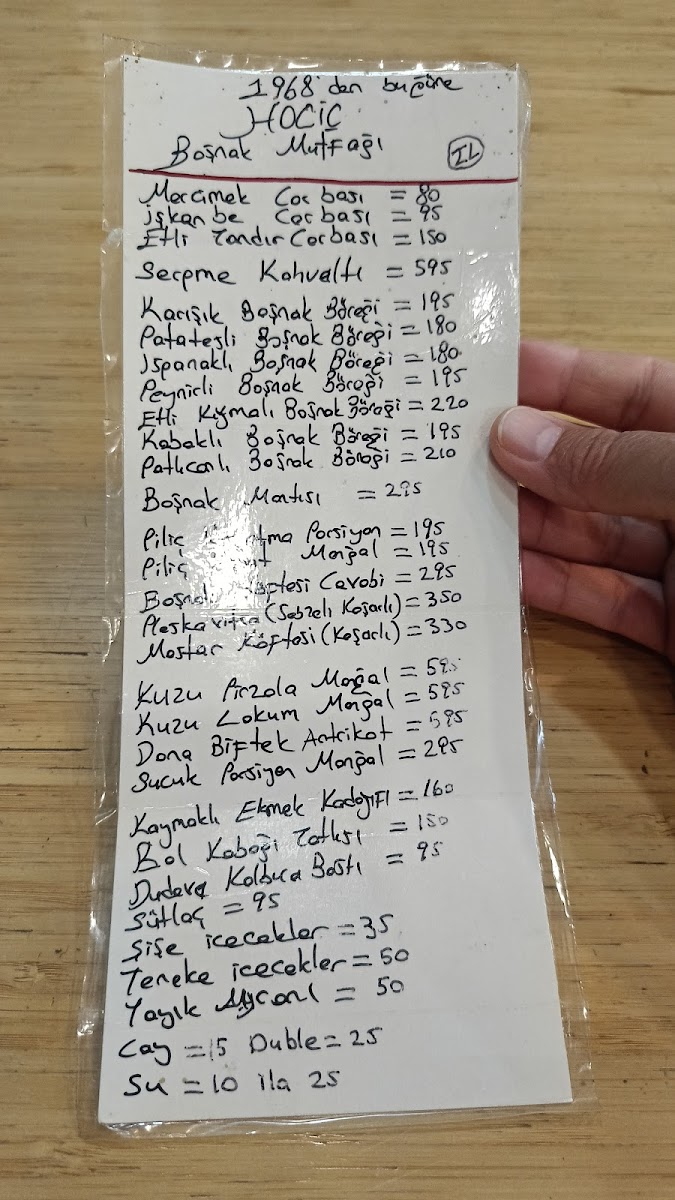 1968'den bugüne
HOCİÇ
Boşnak Mutfağı
TL
Mercimek Corbası = 80
işkanbe Corbası = 95
Etli Tandır Corbası = 150
Serpme Kahvaltı = 595
Karışık Boşnak Böreği = 195
Patatesli Boşnak Böreği = 180
Ispanaklı Boşnak Böreği = 180
Peynirli Boşnak Böreği = 195
Etli Kıymalı Boşnak Böreği = 220
Kabaklı Boşnak Böreği = 195
Patlıcanlı Boşnak Böreği = 210
Boşnak Mantısı = 295
Piliç Porsiyon = 195
Piliç Mangal = 195
Boşnak Köftesi Cavobi = 295
Pleskavitsa (Sebzeli Kaşarlı) = 350
Mostar Köftesi (Kaşarlı) = 330
Kuzu Pirzola Mangal = 595
Kuzu Lokum Mangal = 595
Dana Biftek Antrikot = 595
Sucuk Porsiyon Mangal = 295
Kaymaklı Ekmek Kadayıfı = 160
Bal Kabağı Tatlısı = 150
Kalbura Bastı = 95
Sütlaç = 95
Şişe icecekler = 35
Teneke icecekler = 50
Yayık Ayranı = 50
Cay = 15 Duble = 25
Su = 10 ila 25